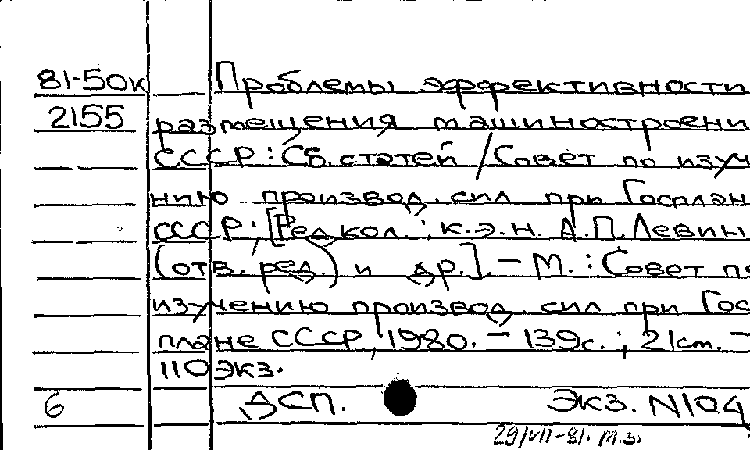 81-50к Проблемы эффективности
2155 размещения машиностроени
СССР: Сб. статей / Совет по изуч
нию производ. сил при Госплан
СССР; [Редкол.: к.э.н. А.П. Левин
(отв. ред.) и др.]. - М.: Совет по
изучению производ. сил при Гос
плане СССР, 1980. - 139с.; 21см. -
110 экз.
6 ДСП. Экз. N104
29/VII-81. т.з.